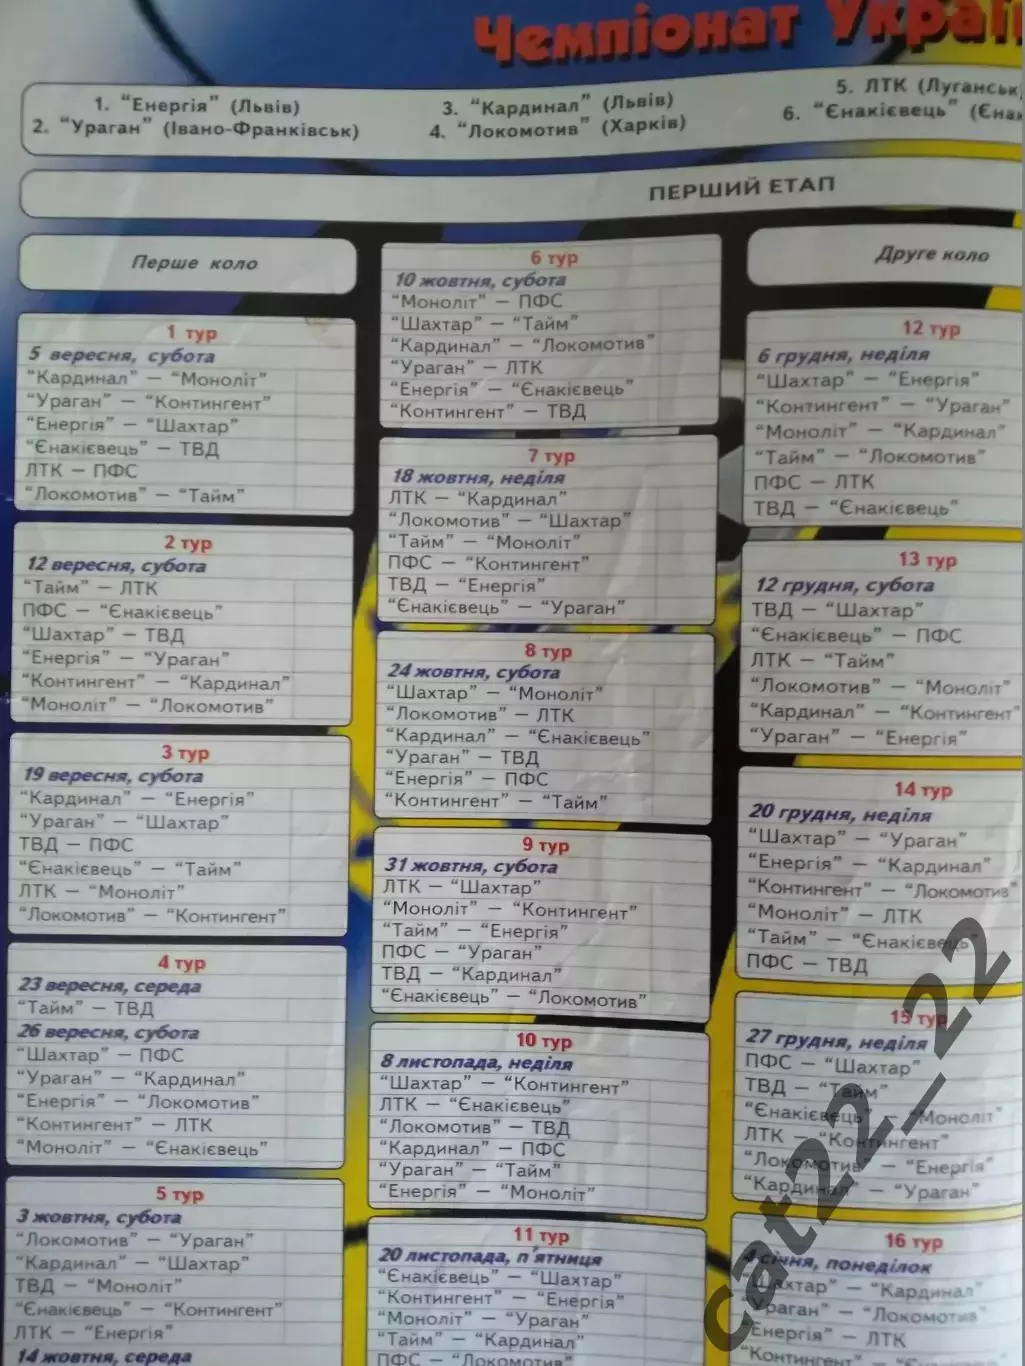 Чемпіонат Украї
1. “Енергія” (Львів)
2. “Ураган” (Івано-Франківськ)
3. “Кардинал” (Львів)
4. “Локомотив” (Харків)
5. ЛТК (Луганськ)
6. “Єнакієвець” (Єнак
ПЕРШИЙ ЕТАП
Перше коло
1 тур
5 вересня, субота
“Кардинал” — “Моноліт”
“Ураган” — “Контингент”
“Енергія” — “Шахтар”
“Єнакієвець” — ТВД
ЛТК — ПФС
“Локомотив” — “Тайм”
2 тур
12 вересня, субота
“Тайм” — ЛТК
ПФС — “Єнакієвець”
“Шахтар” — ТВД
“Енергія” — “Ураган”
“Контингент” — “Кардинал”
“Моноліт” — “Локомотив”
3 тур
19 вересня, субота
“Кардинал” — “Енергія”
“Ураган” — “Шахтар”
ТВД — ПФС
“Єнакієвець” — “Тайм”
ЛТК — “Моноліт”
“Локомотив” — “Контингент”
4 тур
23 вересня, середа
“Тайм” — ТВД
26 вересня, субота
“Шахтар” — ПФС
“Ураган” — “Кардинал”
“Енергія” — “Локомотив”
“Контингент” — ЛТК
“Моноліт” — “Єнакієвець”
5 тур
3 жовтня, субота
“Локомотив” — “Ураган”
“Кардинал” — “Шахтар”
ТВД — “Моноліт”
“Єнакієвець” — “Контингент”
ЛТК — “Енергія”
14 жовтня, середа
6 тур
10 жовтня, субота
“Моноліт” — ПФС
“Шахтар” — “Тайм”
“Кардинал” — “Локомотив”
“Ураган” — ЛТК
“Енергія” — “Єнакієвець”
“Контингент” — ТВД
7 тур
18 жовтня, неділя
ЛТК — “Кардинал”
“Локомотив” — “Шахтар”
“Тайм” — “Моноліт”
ПФС — “Контингент”
ТВД — “Енергія”
“Єнакієвець” — “Ураган”
8 тур
24 жовтня, субота
“Шахтар” — “Моноліт”
“Локомотив” — ЛТК
“Кардинал” — “Єнакієвець”
“Ураган” — ТВД
“Енергія” — ПФС
“Контингент” — “Тайм”
9 тур
31 жовтня, субота
ЛТК — “Шахтар”
“Моноліт” — “Контингент”
“Тайм” — “Енергія”
ПФС — “Ураган”
ТВД — “Кардинал”
“Єнакієвець” — “Локомотив”
10 тур
8 листопада, неділя
“Шахтар” — “Контингент”
ЛТК — “Єнакієвець”
“Локомотив” — ТВД
“Кардинал” — ПФС
“Ураган” — “Тайм”
“Енергія” — “Моноліт”
11 тур
20 листопада, п’ятниця
“Єнакієвець” — “Шахтар”
“Контингент” — “Енергія”
“Моноліт” — “Ураган”
“Тайм” — “Кардинал”
ПФС — “Локомотив”
Друге коло
12 тур
6 грудня, неділя
“Шахтар” — “Енергія”
“Контингент” — “Ураган”
“Моноліт” — “Кардинал”
“Тайм” — “Локомотив”
ПФС — ЛТК
ТВД — “Єнакієвець”
13 тур
12 грудня, субота
ТВД — “Шахтар”
“Єнакієвець” — ПФС
ЛТК — “Тайм”
“Локомотив” — “Моноліт”
“Кардинал” — “Контингент”
“Ураган” — “Енергія”
14 тур
20 грудня, неділя
“Шахтар” — “Ураган”
“Енергія” — “Кардинал”
“Контингент” — “Локомотив”
“Моноліт” — ЛТК
“Тайм” — “Єнакієвець”
ПФС — ТВД
15 тур
27 грудня, неділя
ПФС — “Шахтар”
ТВД — “Тайм”
“Єнакієвець” — “Моноліт”
ЛТК — “Контингент”
“Локомотив” — “Енергія”
“Кардинал” — “Ураган”
16 тур
4 січня, понеділок
“Шахтар” — “Кардинал”
“Ураган” — “Локомотив”
“Енергія” — ЛТК
“Контингент” —
cat22_22